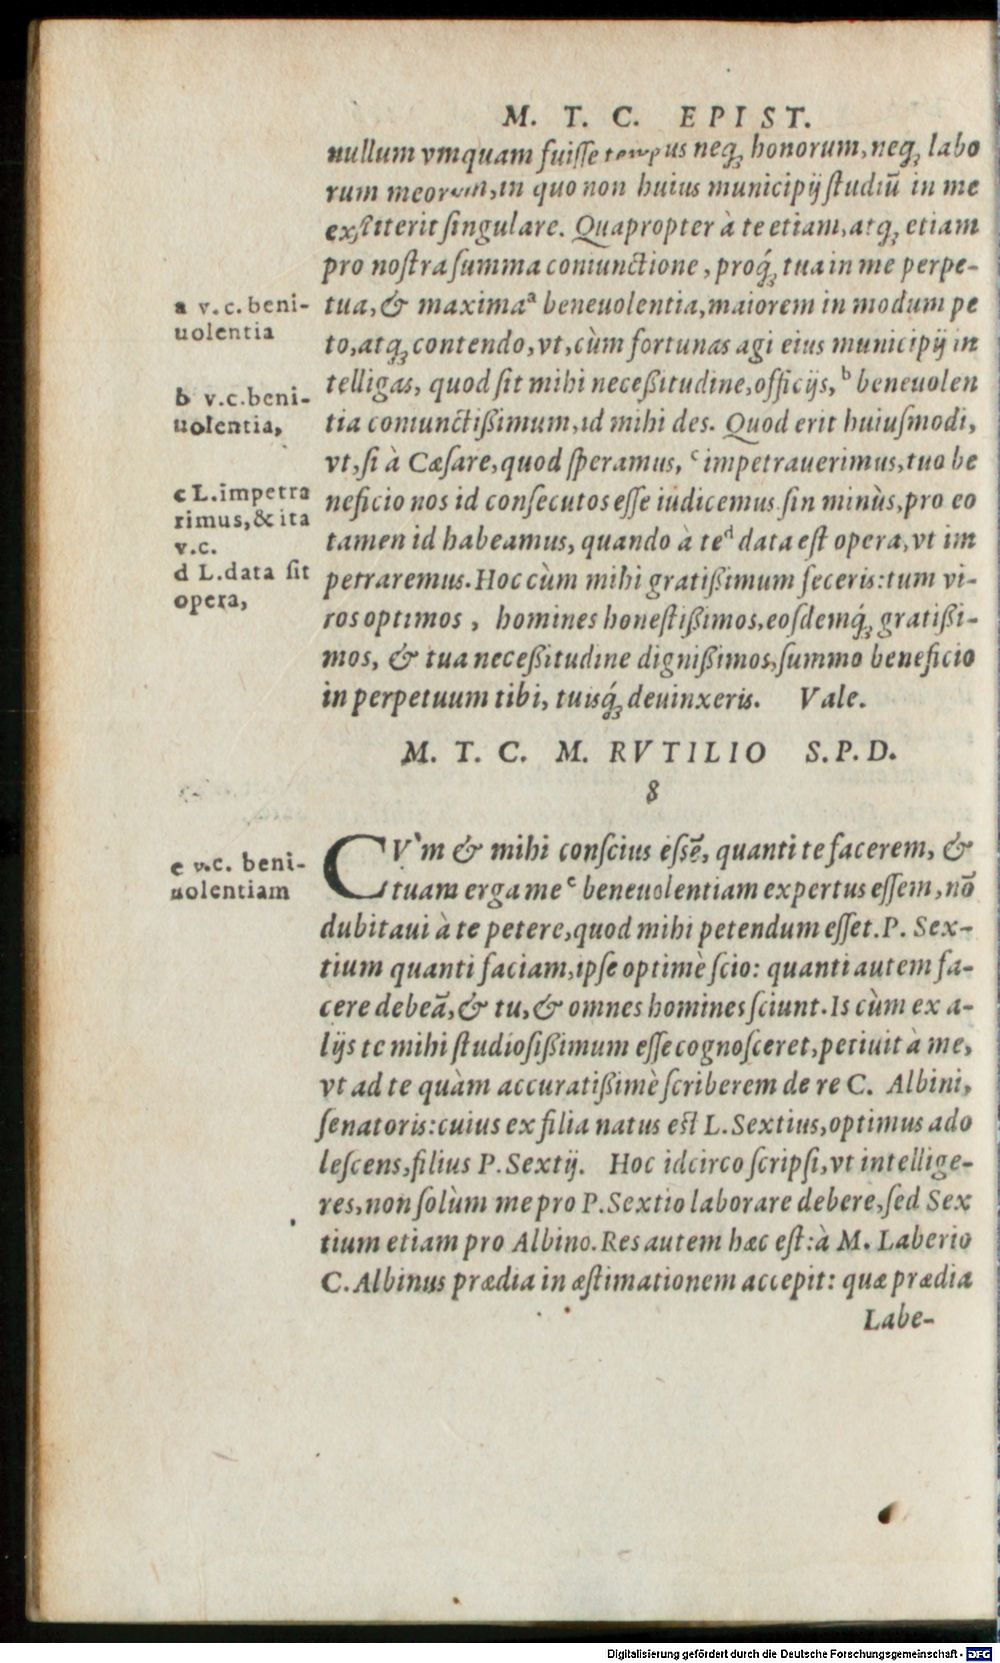 M. T. C. EPIST.
nullum vmquam fuiſſe tempus neq; honorum, neq; labo
rum meorum, in quo non huius municipij ſtudiū in me
exſtiterit ſingulare. Quapropter à te etiam, atq; etiam
pro noſtra ſumma coniunctione, proq́; tua in me perpe-
tua, & maxima ᵃ beneuolentia, maiorem in modum pe
to, atq; contendo, vt, cùm fortunas agi eius municipij in
telligas, quod ſit mihi neceßitudine, officijs, ᵇ beneuolen
tia coniunctißimum, id mihi des. Quod erit huiuſmodi,
vt, ſi à Cæſare, quod ſperamus, ᶜ impetrauerimus, tuo be
neficio nos id conſecutos eſſe iudicemus. ſin minùs, pro eo
tamen id habeamus, quando à te ᵈ data eſt opera, vt im
petraremus. Hoc cùm mihi gratißimum feceris: tum vi-
ros optimos, homines honeſtißimos, eoſdemq́; gratißi-
mos, & tua neceßitudine dignißimos, ſummo beneficio
in perpetuum tibi, tuisq́; deuinxeris. Vale.
a v.c. beni-
uolentia
b v.c. beni-
uolentia,
c L. impetra
rimus, & ita
v.c.
d L. data ſit
opera,
M. T. C. M. RVTILIO S. P. D.
8
CVm & mihi conſcius eſsē, quanti te facerem, &
tuam erga me ᵉ beneuolentiam expertus eſſem, nō
dubitaui à te petere, quod mihi petendum eſſet. P. Sex-
tium quanti faciam, ipſe optimè ſcio: quanti autem fa-
cere debeā, & tu, & omnes homines ſciunt. Is cùm ex a-
lijs te mihi ſtudioſißimum eſſe cognoſceret, petiuit à me,
vt ad te quàm accuratißimè ſcriberem de re C. Albini,
ſenatoris: cuius ex filia natus eſt L. Sextius, optimus ado
leſcens, filius P. Sextij. Hoc idcirco ſcripſi, vt intellige-
res, non ſolùm me pro P. Sextio laborare debere, ſed Sex
tium etiam pro Albino. Res autem hæc eſt: à M. Laberio
C. Albinus prædia in æſtimationem accepit: quæ prædia
Labe-
e v.c. beni-
uolentiam
Digitalisierung gefördert durch die Deutsche Forschungsgemeinschaft - DFG